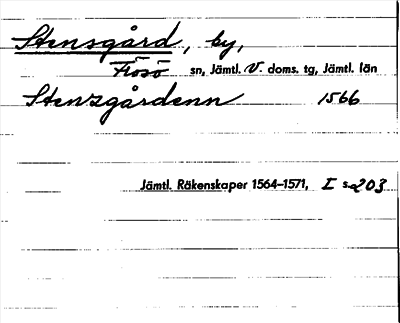 Stensgård, by,
Frösö sn, Jämtl. V. doms. tg, Jämtl. län
Stenzgårdenn 1566
Jämtl. Räkenskaper 1564–1571, I s. 203